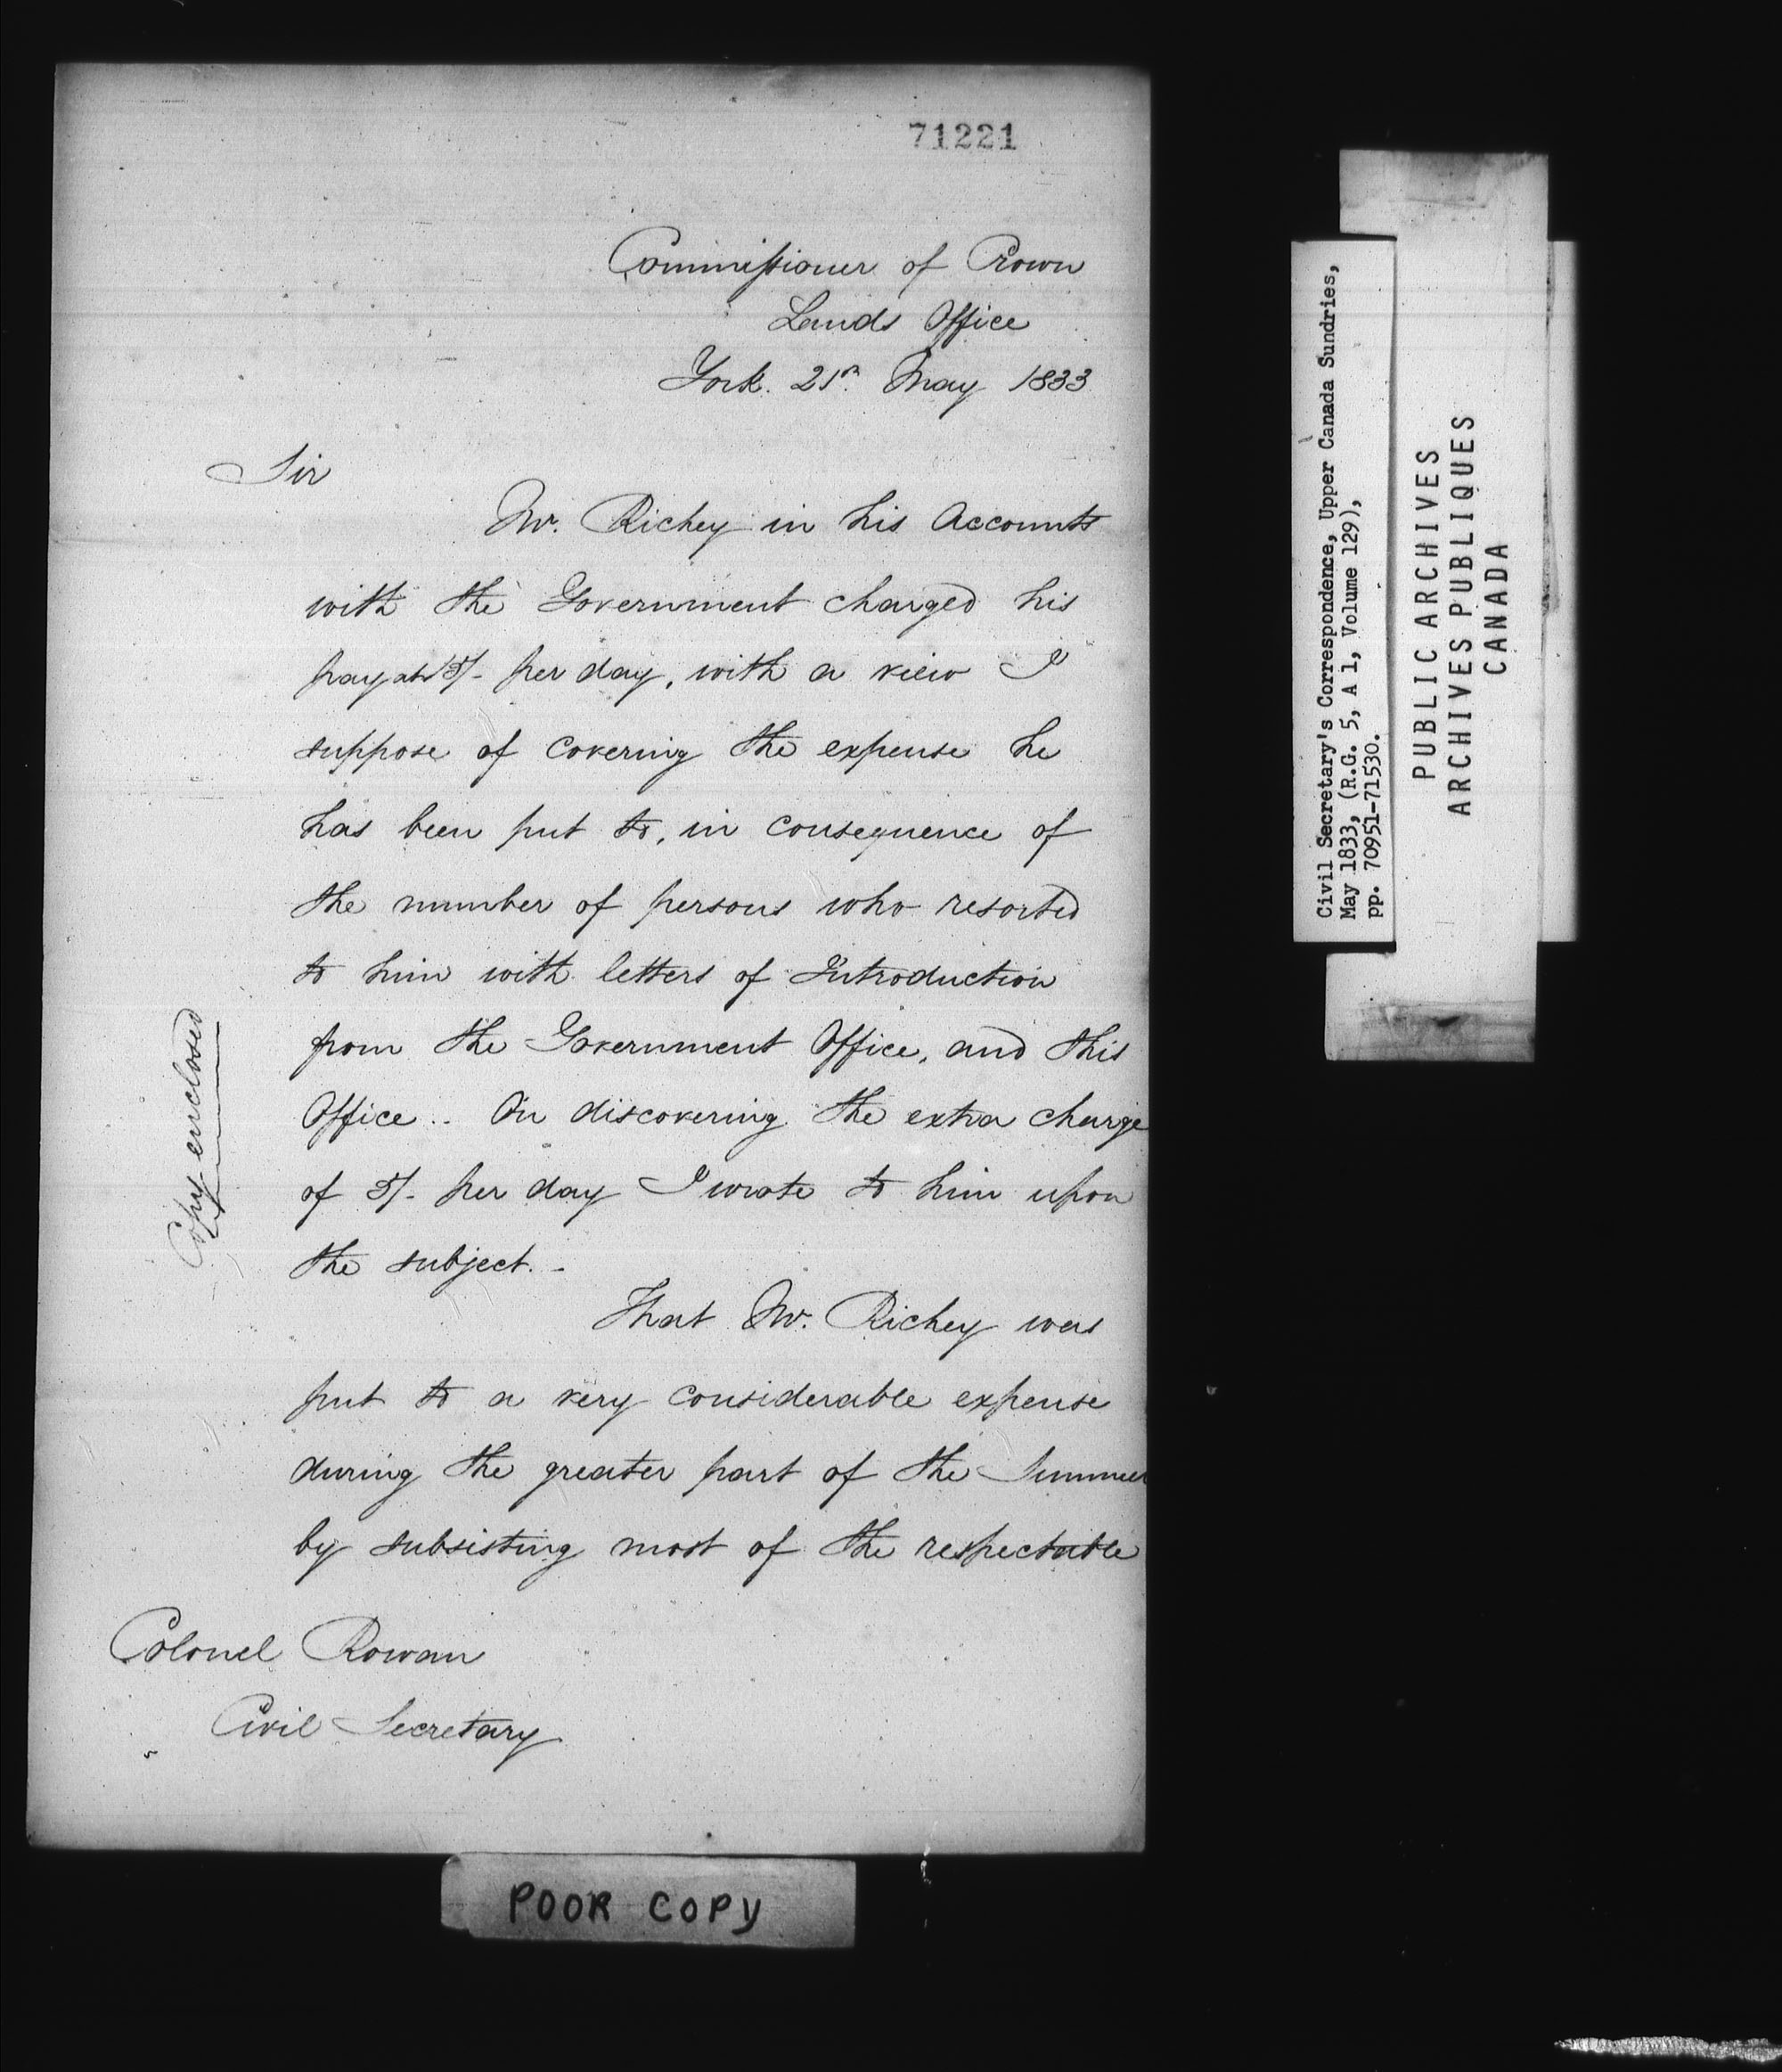 71221
Commissioner of Crown
Lands Office
York. 21st May 1833
Sir
Mr. Richey in his Accounts
with the Government charged his
pay at 15/- per day, with a view I
suppose of covering the expense he
has been put to, in consequence of
the number of persons who resorted
to him with letters of Introduction
from the Government Office, and this
Office.. On discovering the extra charge
of 5/- per day I wrote to him upon
the subject. -
Copy enclosed
That Mr. Richey was
put to a very considerable expense
during the greater part of the Summer
by subsisting most of the respectable
Colonel Rowan
Civil Secretary
POOR COPY
Civil Secretary's Correspondence, Upper Canada Sundries,
May 1833, (R.G. 5, A 1, Volume 129),
pp. 70951-71530.
PUBLIC ARCHIVES
ARCHIVES PUBLIQUES
CANADA